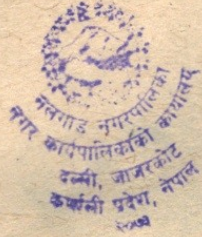 नलगाड नगरपालिका
नगर कार्यपालिकाको कार्यालय
दल्ली, जाजरकोट
कर्णाली प्रदेश, नेपाल